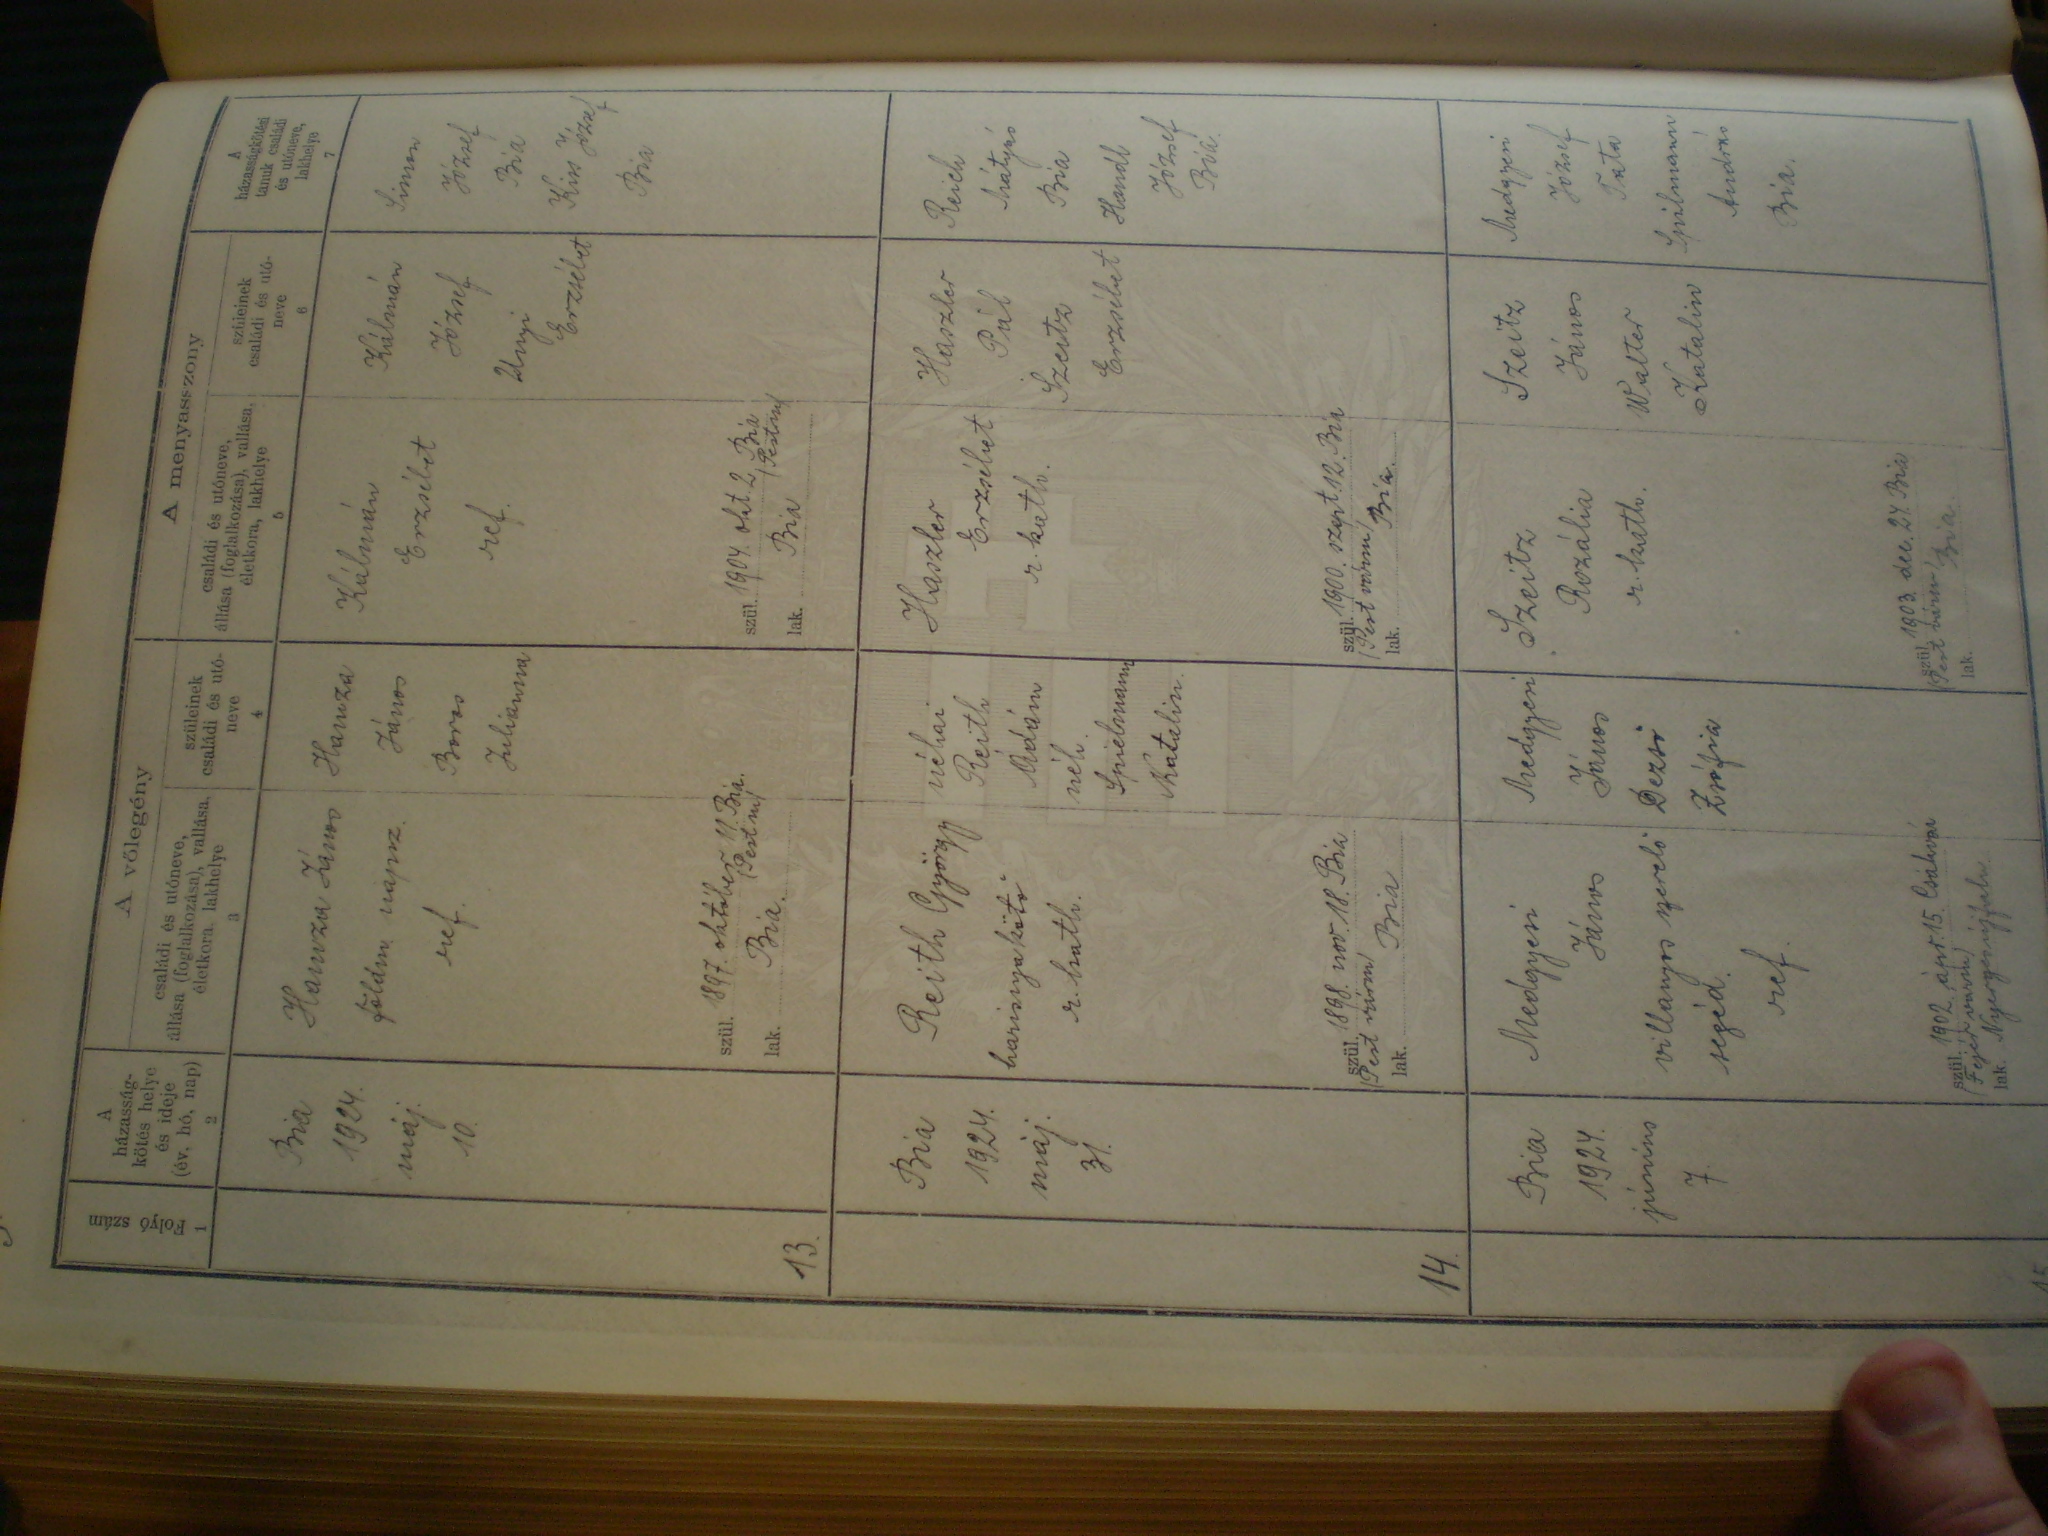 Folyó szám
1
A
házasság-
kötés helye
és ideje
(év, hó, nap)
2
A vőlegény
családi és utóneve,
állása (foglalkozása), vallása,
életkora, lakhelye
3
szüleinek
családi és utó-
neve
4
A menyasszony
családi és utóneve,
állása (foglalkozása), vallása,
életkora, lakhelye
5
szüleinek
családi és utó-
neve
6
A
házasságkötési
tanuk családi
és utóneve,
lakhelye
7
13.
Bia
1924.
máj.
10.
Hanza János
földm. napsz.
ref.
szül. 1897. október 11. Bia.
(Pest m)
lak. Bia.
Hanza
János
Boros
Julianna
Kálmán
Erzsébet
ref.
szül. 1904. okt. 2. Bia
(Pest m)
lak. Bia
Kálmán
József
Unyi
Erzsébet
Simon
József
Bia
Kiss József
Bia
14.
Bia
1924.
máj.
31.
Reith György
harisnyakötő
r. kath.
szül. 1898. nov. 18. Bia
(Pest várm)
lak. Bia
néhai
Reith
Ádám
néh.
Spielmann
Katalin.
Haszler
Erzsébet
r. kath.
szül. 1900. szept. 12. Bia
(Pest várm)
lak. Bia.
Haszler
Pál
Szeitz
Erzsébet
Reich
Mátyás
Bia
Handl
József
Bia.
15
Bia
1924.
június
7.
Medgyesi
János
villanyos szerelő
segéd.
ref.
szül. 1902. ápr. 15. Csákvár
(Fejér várm)
lak. Nyergesújfalu
Medgyesi
János
Dezsi
Zsófia
Szeitz
Rozália
r. kath.
szül. 1903. dec. 27. Bia
(Pest várm)
lak. Bia.
Szeitz
János
Walter
Katalin
Medgyesi
József
Tata
Spilmann
András
Bia.